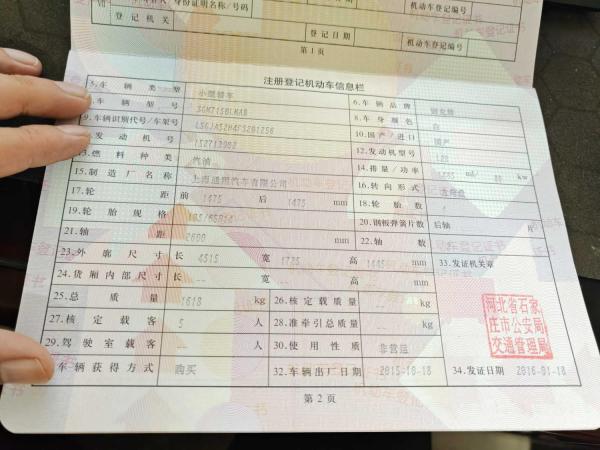 Ⅶ 身份证明名称/号码
登记机关 登记日期 机动车登记编号
机动车登记编号
第1页
注册登记机动车信息栏
5.车辆类型 小型轿车 6.车辆品牌
车辆型号 8.车身颜色 白
9.车辆识别代号/车架号 10.国产/进口 国产
发动机号 152713982 12.发动机型号
燃料种类 汽油 14.排量/功率 ml kw
15.制造厂名称 上海通用汽车有限公司 16.转向形式
17.轮距 前 1475 后 1475 mm 18.轮胎数
19.轮胎规格 185/65R14 20.钢板弹簧片数 后轴 片
21.轴距 2600 mm 22.轴数
23.外廓尺寸 长 4515 宽 1725 高 1445 mm 33.发证机关章
24.货厢内部尺寸 长 -- 宽 -- 高 -- mm
25.总质量 1618 kg 26.核定载质量 -- kg
27.核定载客 5 人 28.准牵引总质量 -- kg
29.驾驶室载客 -- 人 30.使用性质 非营运
车辆获得方式 购买 32.车辆出厂日期 2015-10-18 34.发证日期 2016-01-18
河北省石家
庄市公安局
交通管理局
第2页